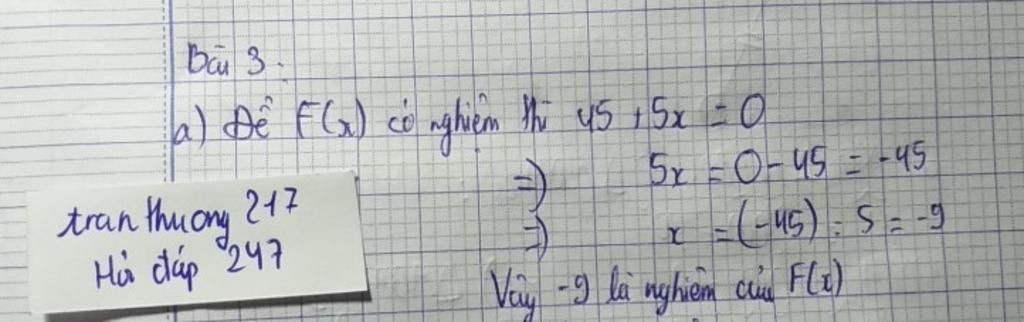 Bài 3.
a) Để F(x) có nghiệm thì 45 + 5x = 0
=) 5x = 0 - 45 = -45
=) x = (-45) : 5 = -9
Vậy -9 là nghiệm của F(x)
tran thuong 217
Hỏi đáp 247